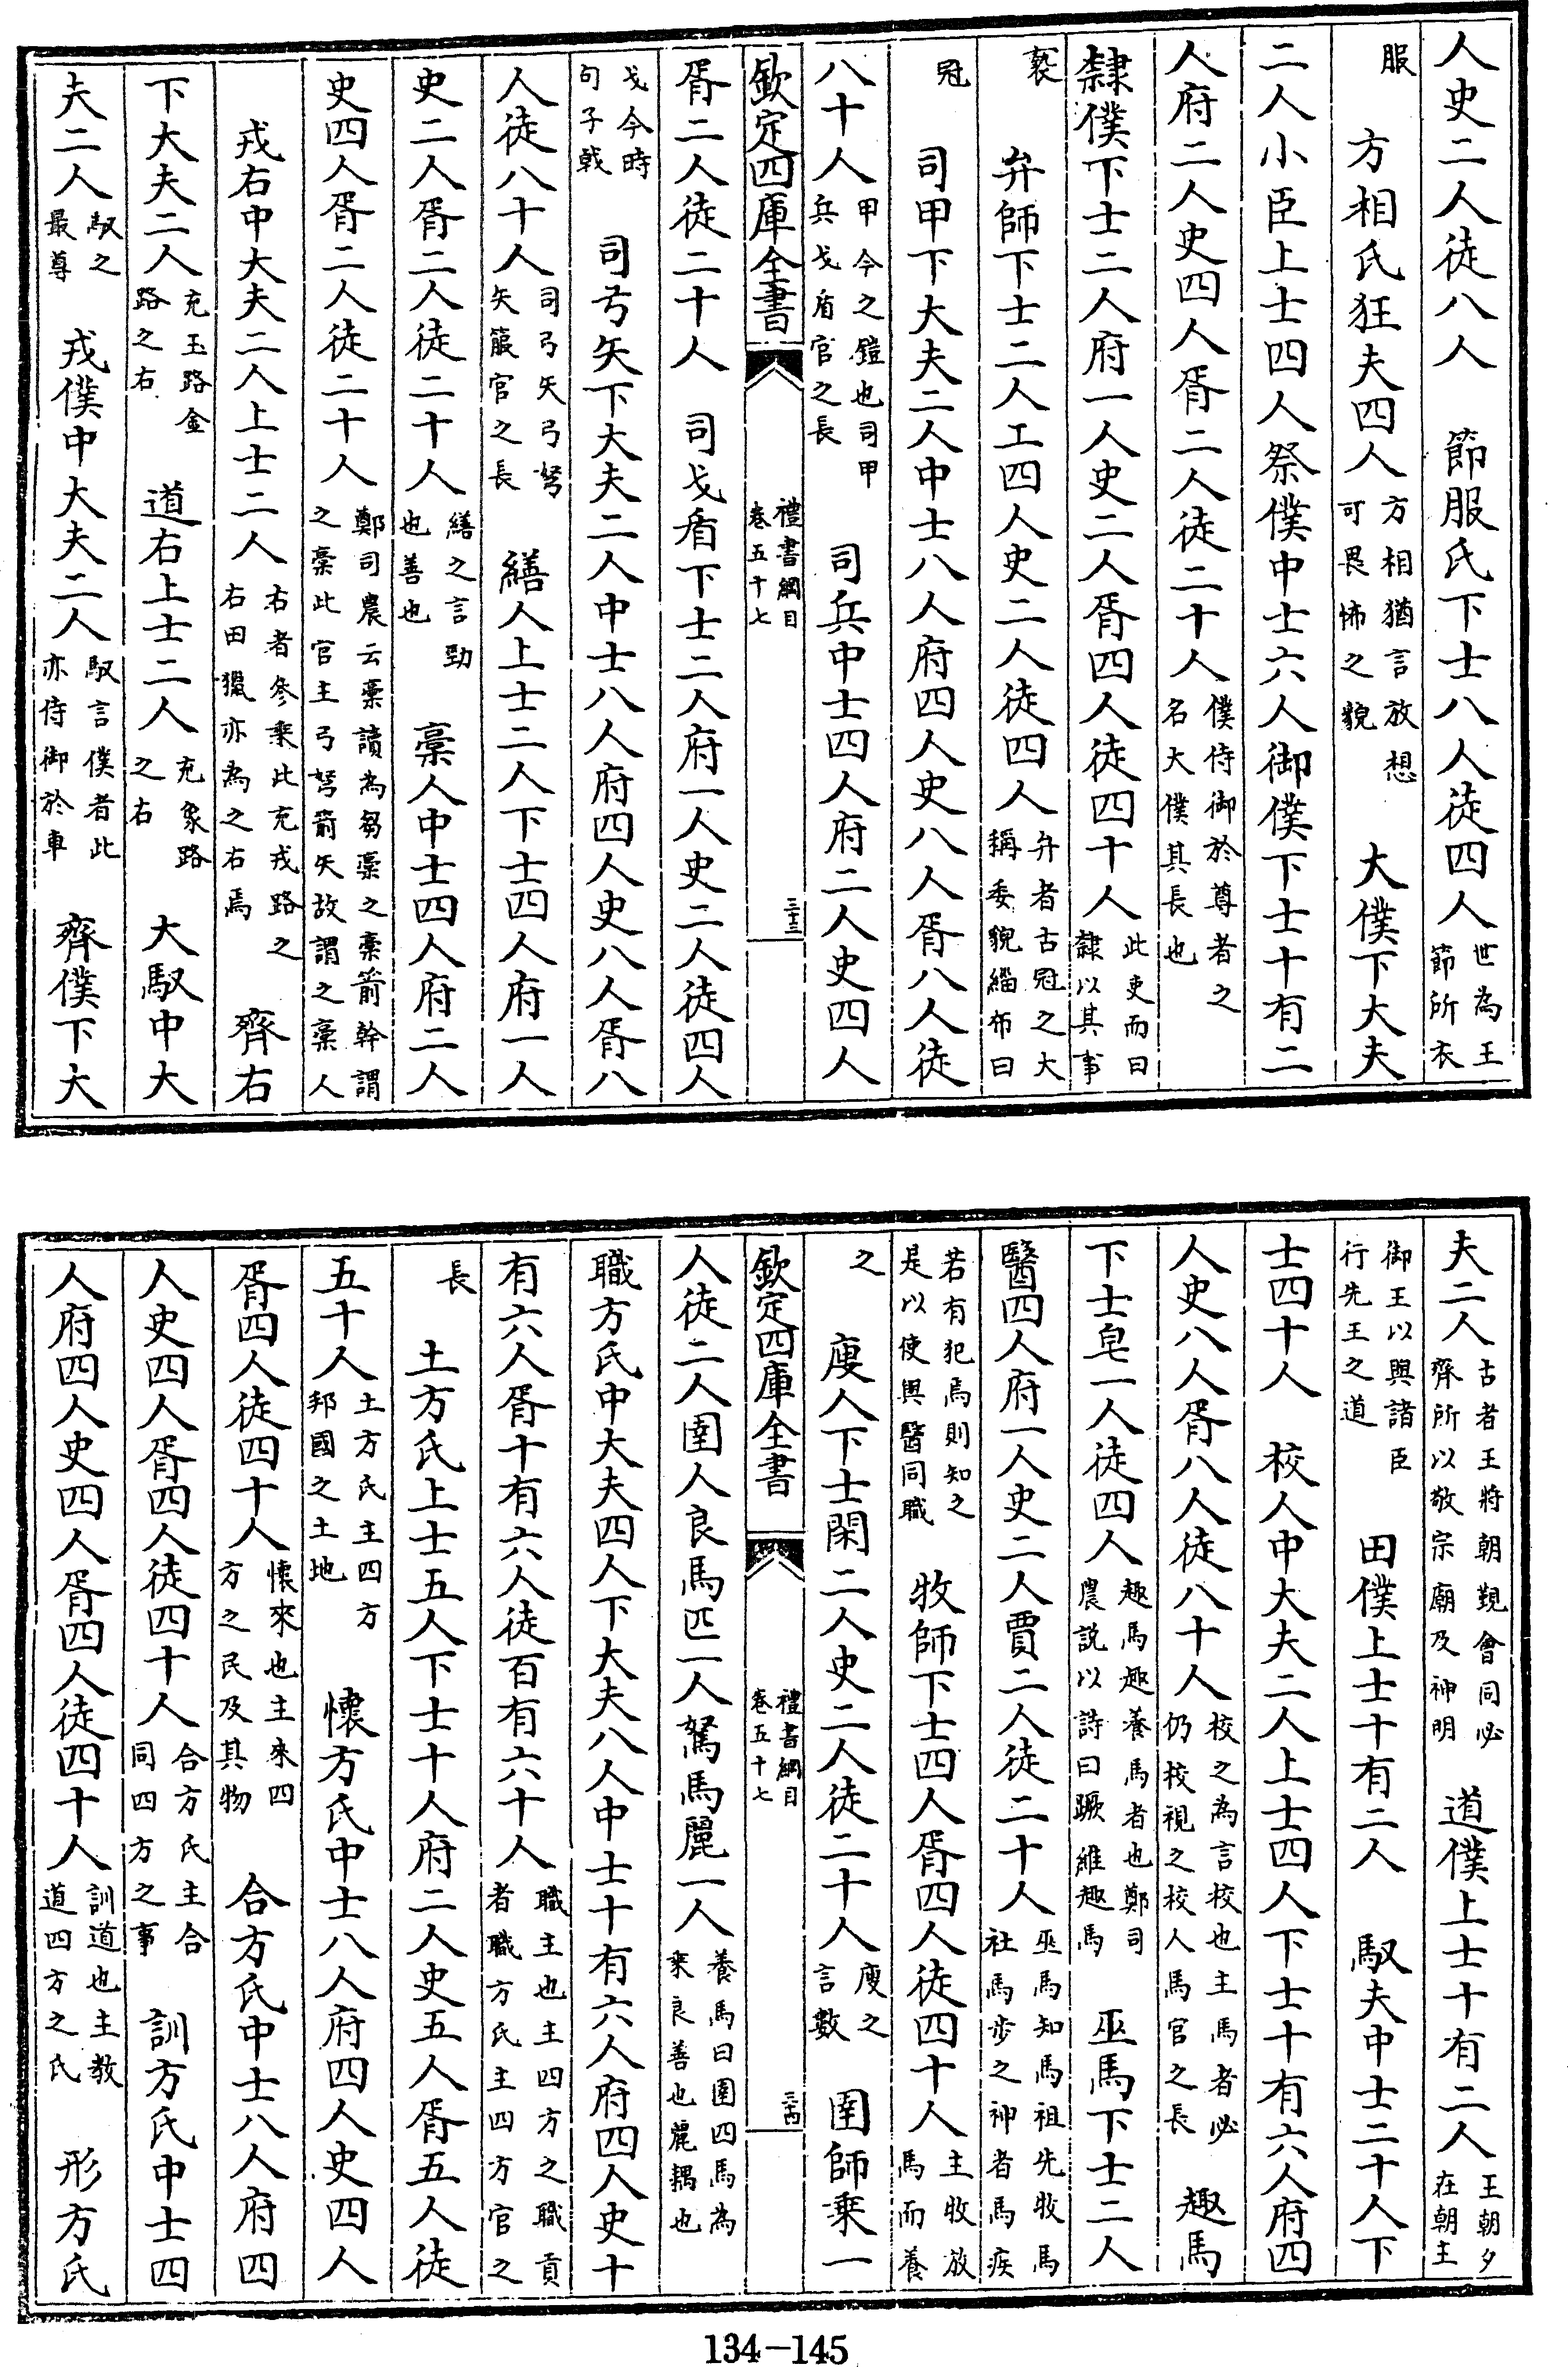 人史二人徒八人　節服氏下士八人徒四人世為王節所衣
服　方相氏狂夫四人方相猶言放想可畏怖之貌　大僕下大夫
二人小臣上士四人祭僕中士六人御僕下士十有二
人府二人史四人胥二人徒二十人僕侍御於尊者之名大僕其長也
隸僕下士二人府一人史二人胥四人徒四十人此吏而曰隸以其事
褻　弁師下士二人工四人史二人徒四人弁者古冠之大稱委貌緇布曰
冠　司甲下大夫二人中士八人府四人史八人胥八人徒
八十人甲今之鎧也司甲兵戈盾官之長　司兵中士四人府二人史四人
欽定四庫全書　禮書綱目卷五十七　三十三
胥二人徒二十人　司戈盾下士二人府一人史二人徒四人
戈今時句子戟　司弓矢下大夫二人中士八人府四人史八人胥八
人徒八十人司弓矢弓弩矢箙官之長　繕人上士二人下士四人府一人
史二人胥二人徒二十人繕之言勁也善也　槀人中士四人府二人
史四人胥二人徒二十人鄭司農云槀讀為芻槀之槀箭幹謂之槀此官主弓弩箭矢故謂之槀人
戎右中大夫二人上士二人右者參乘此充戎路之右田獵亦為之右焉　齊右
下大夫二人充玉路金路之右　道右上士二人充象路之右　大馭中大
夫二人馭之最尊　戎僕中大夫二人馭言僕者此亦侍御於車　齊僕下大
夫二人古者王將朝覲會同必齊所以敬宗廟及神明　道僕上士十有二人王朝夕在朝主
御王以與諸臣行先王之道　田僕上士十有二人　馭夫中士二十人下
士四十人　校人中大夫二人上士四人下士十有六人府四
人史八人胥八人徒八十人校之為言校也主馬者必仍校視之校人馬官之長　趣馬
下士皂一人徒四人趣馬趣養馬者也鄭司農說以詩曰蹶維趣馬　巫馬下士二人
醫四人府一人史二人賈二人徒二十人巫馬知馬祖先牧馬社馬步之神者馬疾
若有犯焉則知之是以使與醫同職　牧師下士四人胥四人徒四十人主牧放馬而養
之　廋人下士閑二人史二人徒二十人廋之言數　圉師乘一
欽定四庫全書　禮書綱目卷五十七　三十四
人徒二人圉人良馬匹一人駑馬麗一人養馬曰圉四馬為乘良善也麗耦也
職方氏中大夫四人下大夫八人中士十有六人府四人史十
有六人胥十有六人徒百有六十人職主也主四方之職貢者職方氏主四方官之
長　土方氏上士五人下士十人府二人史五人胥五人徒
五十人土方氏主四方邦國之土地　懷方氏中士八人府四人史四人
胥四人徒四十人懷來也主來四方之民及其物　合方氏中士八人府四
人史四人胥四人徒四十人合方氏主合同四方之事　訓方氏中士四
人府四人史四人胥四人徒四十人訓道也主教道四方之氏　形方氏
134-145